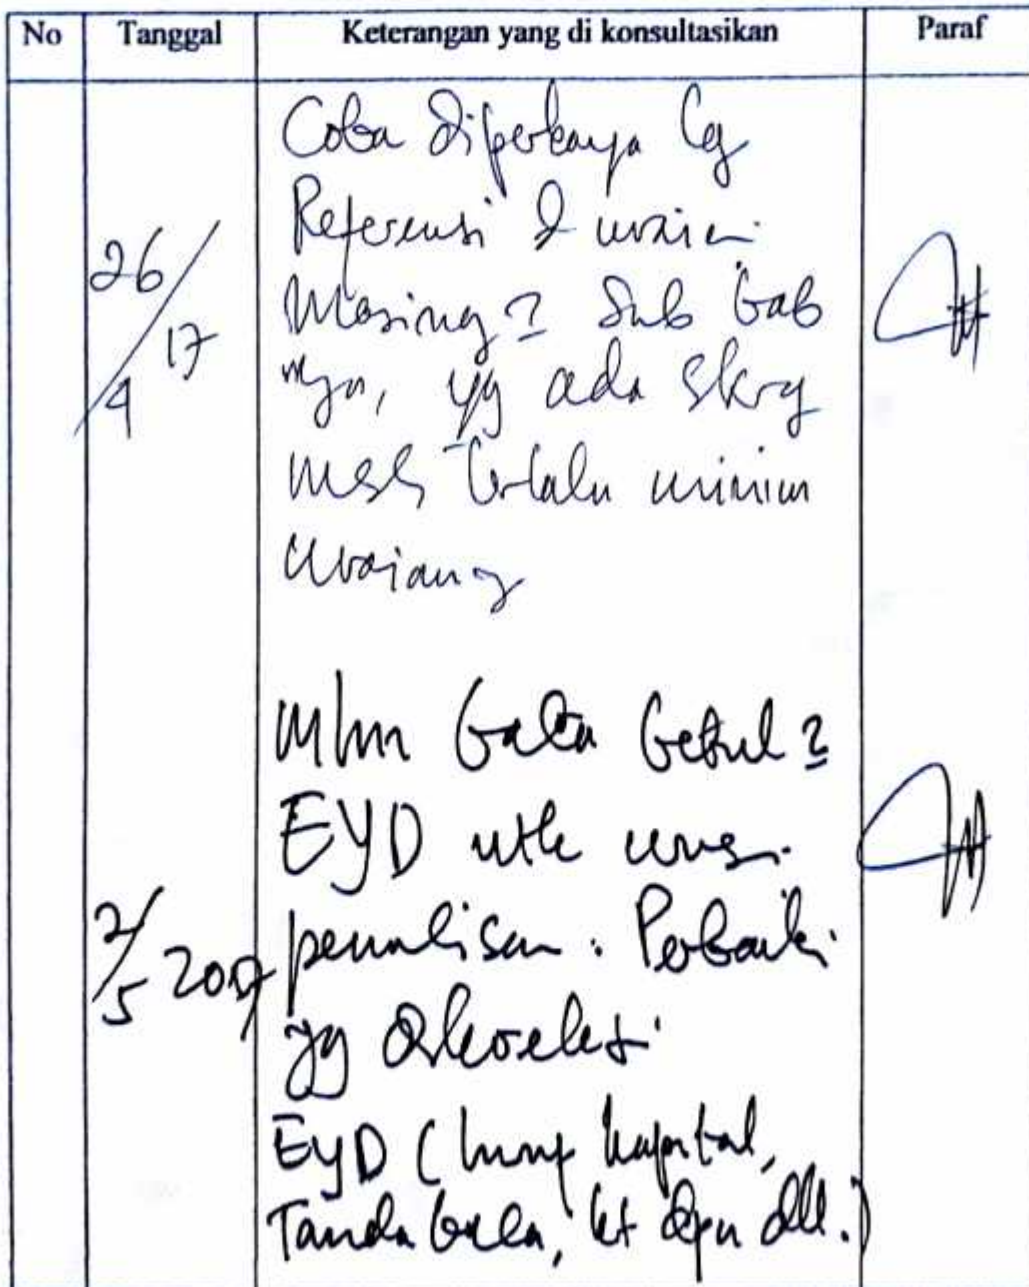 No Tanggal Keterangan yang di konsultasikan Paraf
Coba diperkaya lg
Referensi & uraian
26/4 17
Masing2 Sub bab
nya, yg ada skrg
msh terlalu minim
uraiannya
Mhn baca betul2
EYD utk
penulisan. Perbaiki
2/5 2017
yg dikoreksi
EYD (huruf kapital,
Tanda baca, kt dpn dll.)